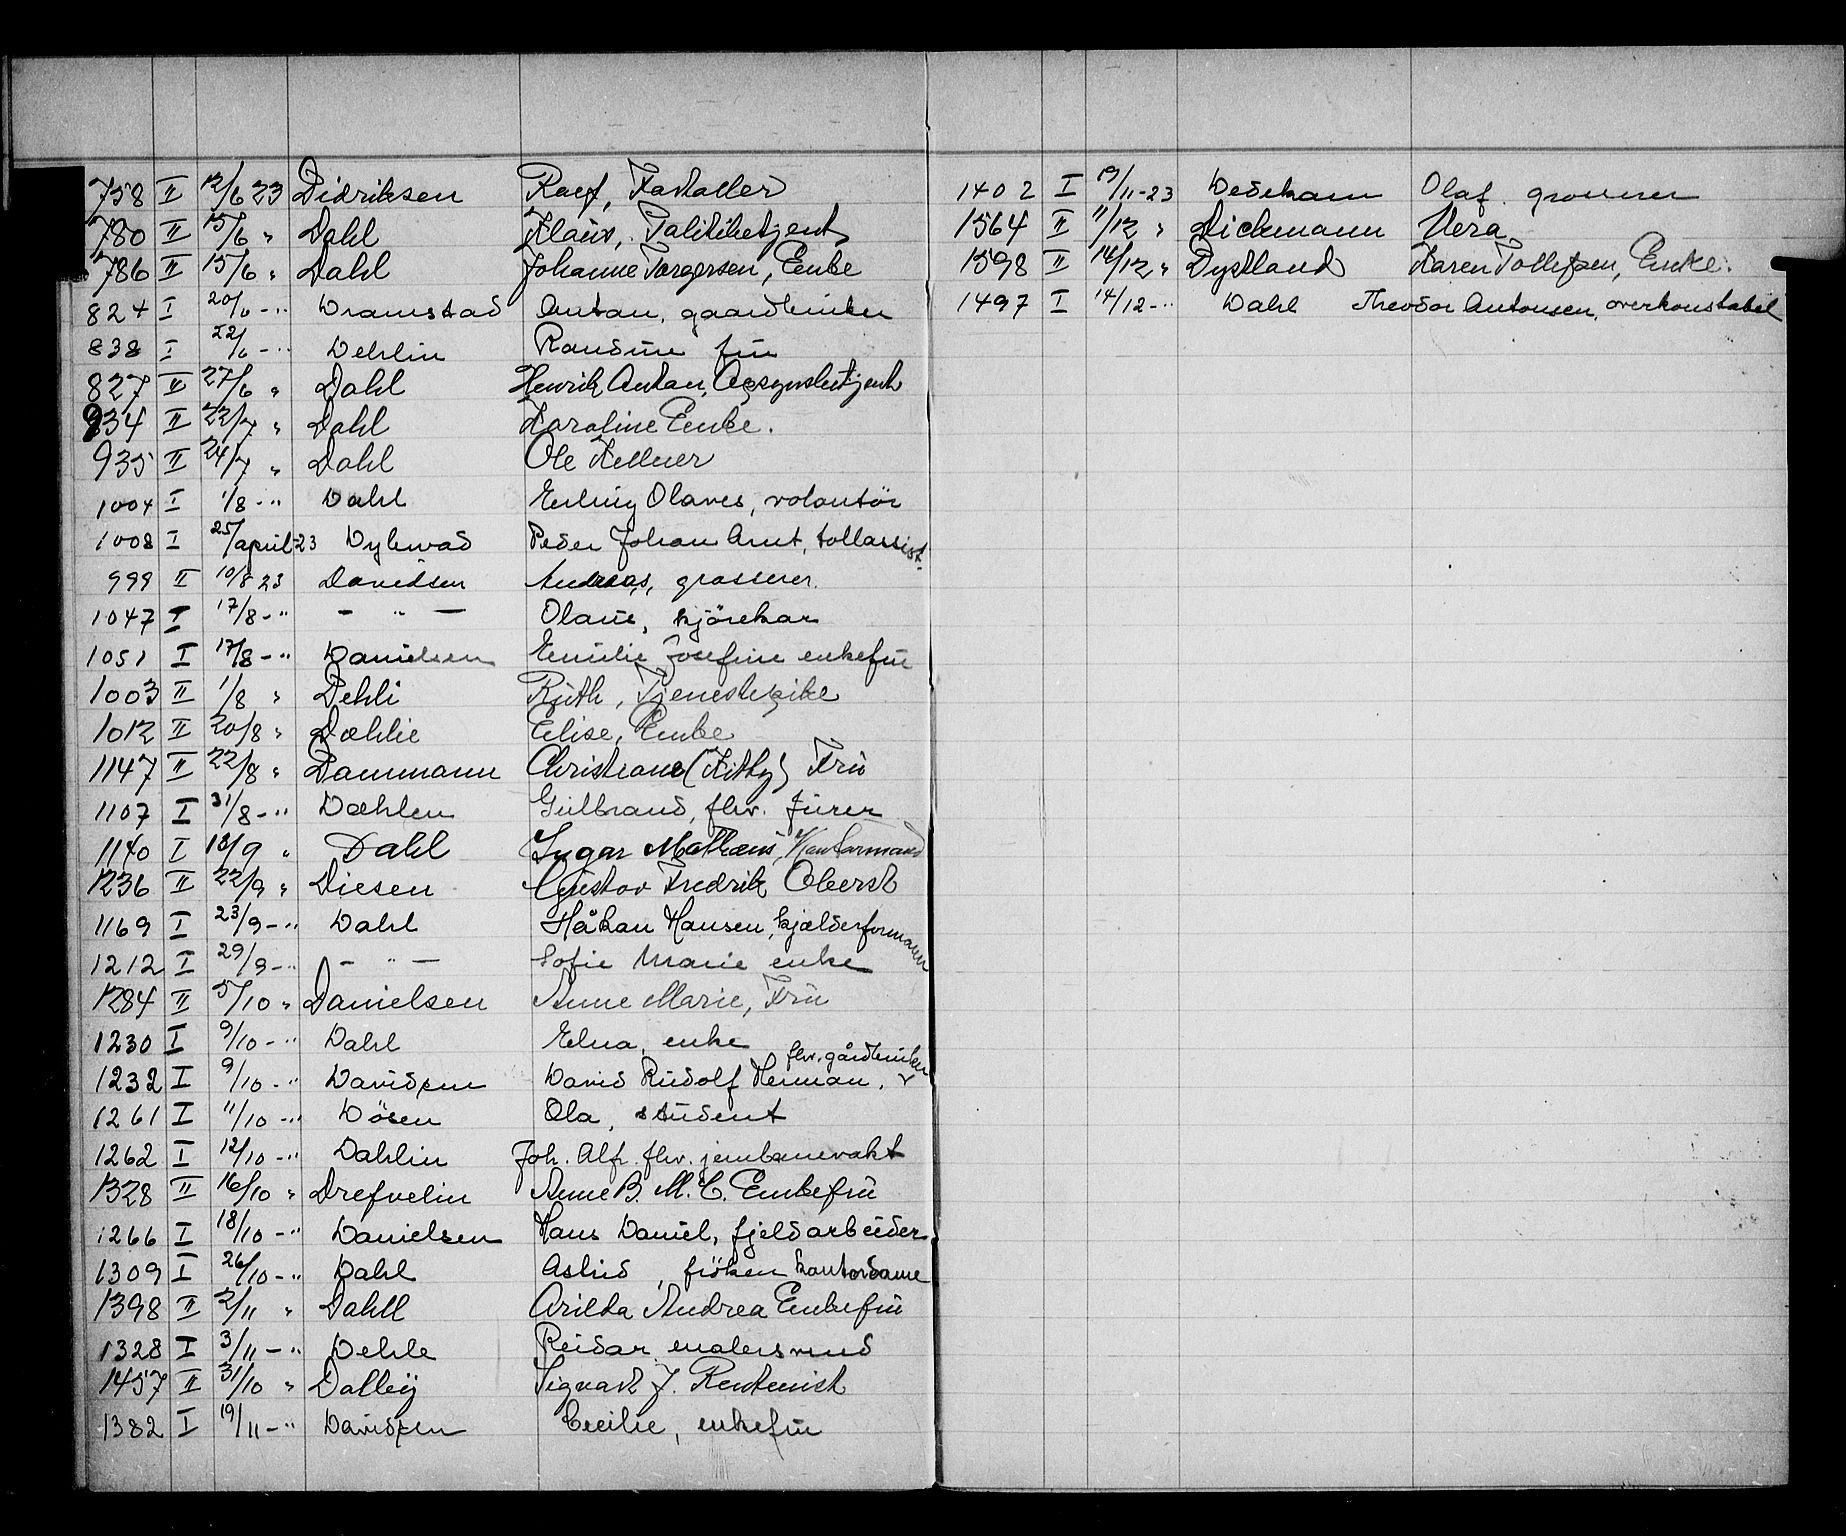 758 II 12/6 23 Didriksen Rolf, Kastaller
780 II 15/6 " Dahl Klaus, Politibetjent
786 II 15/6 " Dahl Johanne Torgersen, Enke
824 I 20/6 -" Dramstad Anton, gaardbruker
838 I 22/6 -" Dehlin Randine fru
827 II 27/6 " Dahl Henrik Anton, Opsynsbetjent
934 II 22/7 " Dahl Karoline Enke.
935 II 24/7 " Dahl Ole Kellner
1004 I 1/8 -" Dahl Erling Olaves, volontör
1008 I 25/april-23 Dyhwad Peder Johan Arnt, tollassist.
999 II 10/8 23 Davidsen Andreas, grosserer.
1047 I 17/8 -" - " - Olaus, kjörekar
1051 I 17/8 -" Danielsen Emilie Josefine enkefru
1003 II 1/8 " Dehli Ruth, Tjenestepike
1012 II 20/8 " Dæhlie Elise, Enke
1147 II 22/8 " Dammann Christiane (Kitty) Fru
1107 I 31/8 -" Dæhlen Gulbrand, fhv. furer
1140 I 18/9 " Dahl Ingar Mathæus, Kontormand
1236 II 22/9 " Diesen Gustav Fredrik Oberst
1169 I 23/9 -" Dahl Håkan Hansen, kjælderformann
1212 I 29/9 -" - " - Sofie Marie enke
1284 II 5/10 " Danielsen Anne Marie, Fru
1230 I 9/10 -" Dahl Elna, enke
1232 I 9/10 -" Davidsen David Rudolf Herman, fhv. gårdbruker
1261 I 11/10 -" Dösen Ola, student
1262 I 12/10 -" Dahlin Joh. Alfr. fhv. jernbanevakt
1328 II 16/10 " Drefvelin Anne B. M. C. Enkefru
1266 I 18/10 -" Danielsen Hans Daniel, fjeldarbeider
1309 I 26/10 -" Dahl Astrid, fröken kontordame
1398 II 2/11 " Dahll Arilda Andrea Enkefru
1328 I 3/11 -" Dehle Reidar malersvend
1457 II 31/10 " Dalley Sigvart J. Rentenist
1382 I 19/11 -" Davidsen Cecilie, enkefru
1402 I 19/11-23 Dedekam Olaf grosserer
1564 II 11/12 " Dickmann Vera
1598 II 14/12 " Dystland Karen Tollefsen, Enke.
1497 I 14/12 -" Dahl Theodor Antonsen, overkonstabel